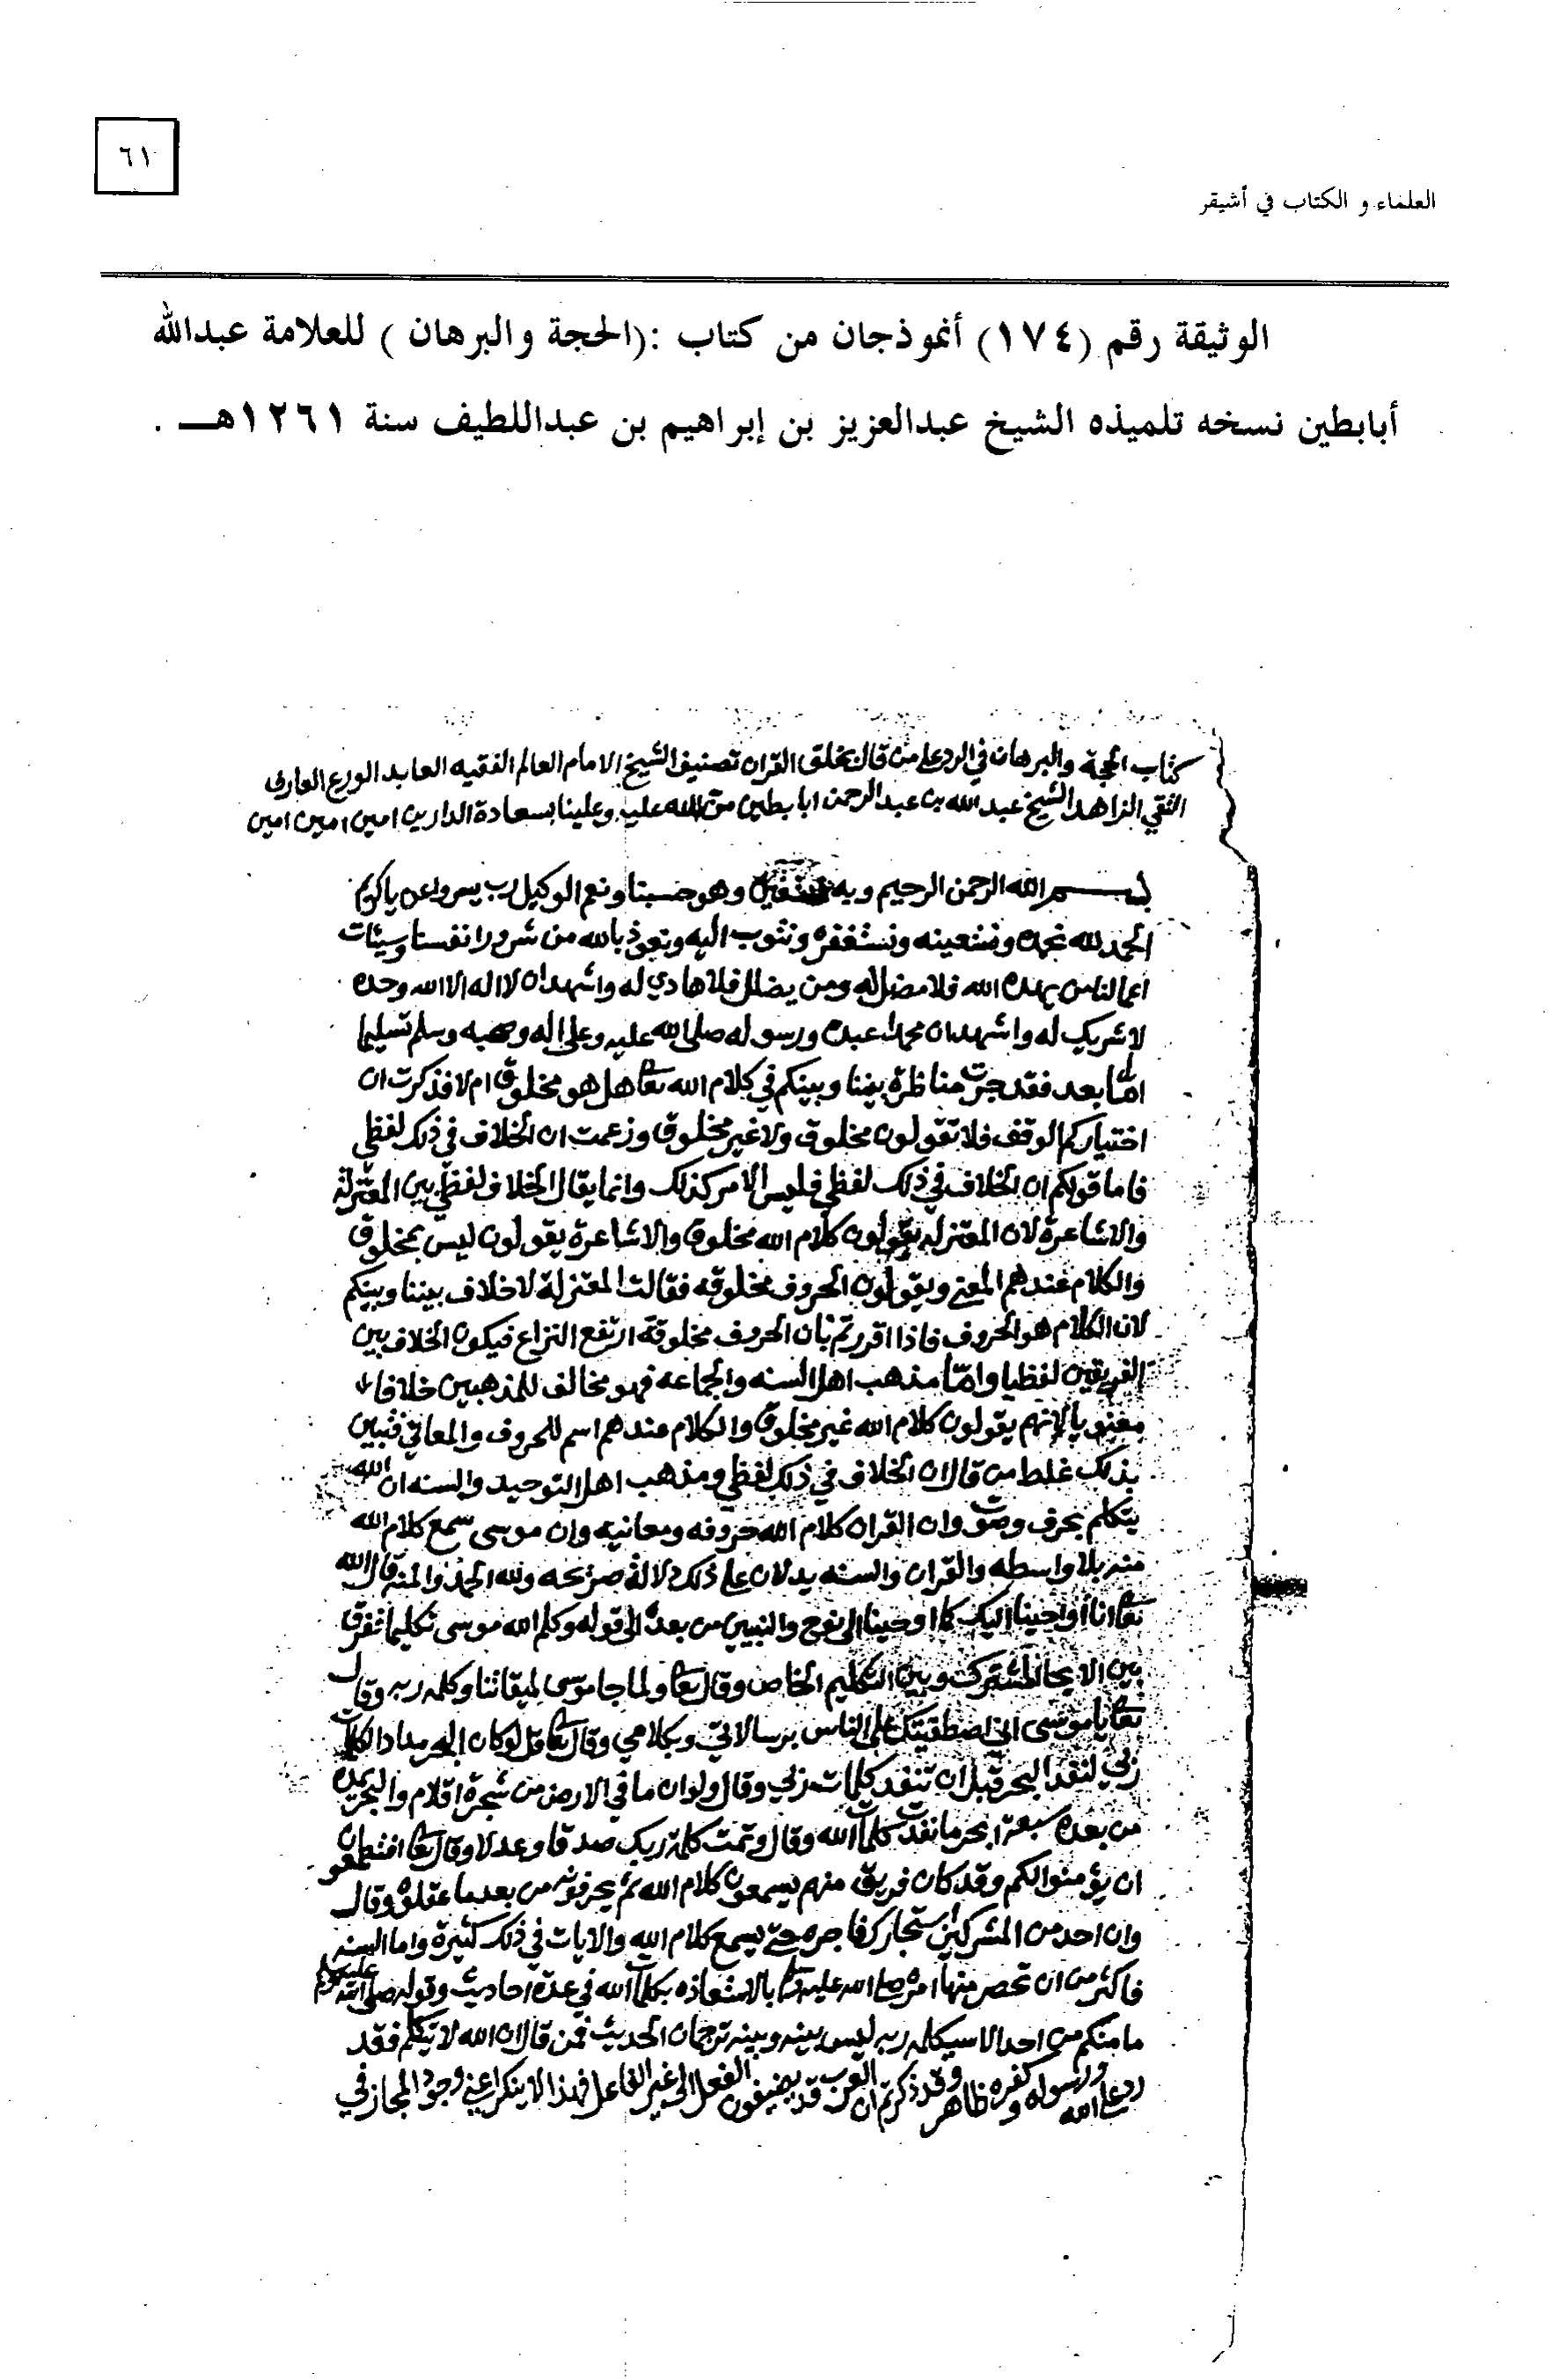 ٦١
العلماء و الكتاب في أشيقر
الوثيقة رقم (١٧٤) أنموذجان من كتاب :(الحجة والبرهان ) للعلامة عبدالله
أبابطين نسخه تلميذه الشيخ عبدالعزيز بن إبراهيم بن عبداللطيف سنة ١٢٦١هـ .
كتاب الحجة والبرهان في الرد على من قال بخلق القران تصنيف الشيخ الامام العالم الفقيه العابد الورع العارف
التقي الزاهد الشيخ عبد الله بن عبد الرحمن ابابطين من الله عليه وعلينا بسعادة الدارين امين امين امين
بسم الله الرحمن الرحيم وبه نستعين وهو حسبنا ونعم الوكيل رب يسر واعن ياكريم
الحمد لله نحمده ونستعينه ونستغفره ونتوب اليه ونعوذ بالله من شرور انفسنا وسيئات
اعمالنا من يهده الله فلا مضل له ومن يضلل فلا هادي له واشهد ان لا اله الا الله وحده
لا شريك له واشهد ان محمدا عبده ورسوله صلى الله عليه وعلى اله وصحبه وسلم تسليما
امّا بعد فقد جرت مناظرة بيننا وبينكم في كلام الله تعا هل هو مخلوق ام لا فذكرت ان
اختياركم الوقف فلا تقولون مخلوق ولا غير مخلوق وزعمت ان الخلاف في ذلك لفظي
فاما قولكم ان الخلاف في ذلك لفظي فليس الامر كذلك وانما يقال الخلاف لفظي بين المعتزلة
والاشاعرة لان المعتزله يقولون كلام الله مخلوق والاشاعرة يقولون ليس بمخلوق
والكلام عندهم المعنى ويقولون الحروف مخلوقه فقالت المعتزلة لا خلاف بيننا وبينكم
لان الكلام هو الحروف فاذا اقررتم بان الحروف مخلوقة ارتفع النزاع فيكون الخلاف بين
الفريقين لفظيا وامّا مذهب اهل السنه والجماعه فهو مخالف للمذهبين خلافا
معنويا لانهم يقولون كلام الله غير مخلوق والكلام عندهم اسم للحروف والمعاني فتبين
بذلك غلط من قال ان الخلاف في ذلك لفظي ومذهب اهل التوحيد والسنه ان الله
يتكلم بحرف وصوت وان القران كلام الله حروفه ومعانيه وان موسى سمع كلام الله
منه بلا واسطه والقران والسنه يدلان على ذلك دلالة صريحه ولله الحمد والمنه قال الله
تعا انا اوحينا اليك كما اوحينا الى نوح والنبيين من بعده الى قوله وكلم الله موسى تكليما ففرق
بين الايحا المشترك وبين التكليم الخاص وقال تعا ولما جا موسى لميقاتنا وكلمه ربه وقال
تعا يا موسى اني اصطفيتك على الناس برسالاتي وبكلامي وقال تعا قل لو كان البحر مدادا لكلمات
ربي لنفد البحر قبل ان تنفد كلمات ربي وقال ولو ان ما في الارض من شجرة اقلام والبحر يمده
من بعده سبعة ابحر ما نفدت كلمات الله وقال وتمت كلمة ربك صدقا وعدلا وقال تعا افتطمعون
ان يؤمنوا لكم وقد كان فريق منهم يسمعون كلام الله ثم يحرفونه من بعد ما عقلوه وقال
وان احد من المشركين استجارك فاجره حتى يسمع كلام الله والايات في ذلك كثيرة واما السنه
فاكثر من ان تحصر منها امره صلى الله عليه وسلم بالاستعاذه بكلمات الله في عدة احاديث وقوله صلى الله عليه وسلم
ما منكم من احد الا سيكلمه ربه ليس بينه وبينه ترجمان الحديث فمن قال ان الله لا يتكلم فقد
رد على الله ورسوله وكفره ظاهر وقد ذكرتم ان العرب قد يضيفون الفعل الى غير الفاعل فهذا لا ينكر اعني وجود المجاز في